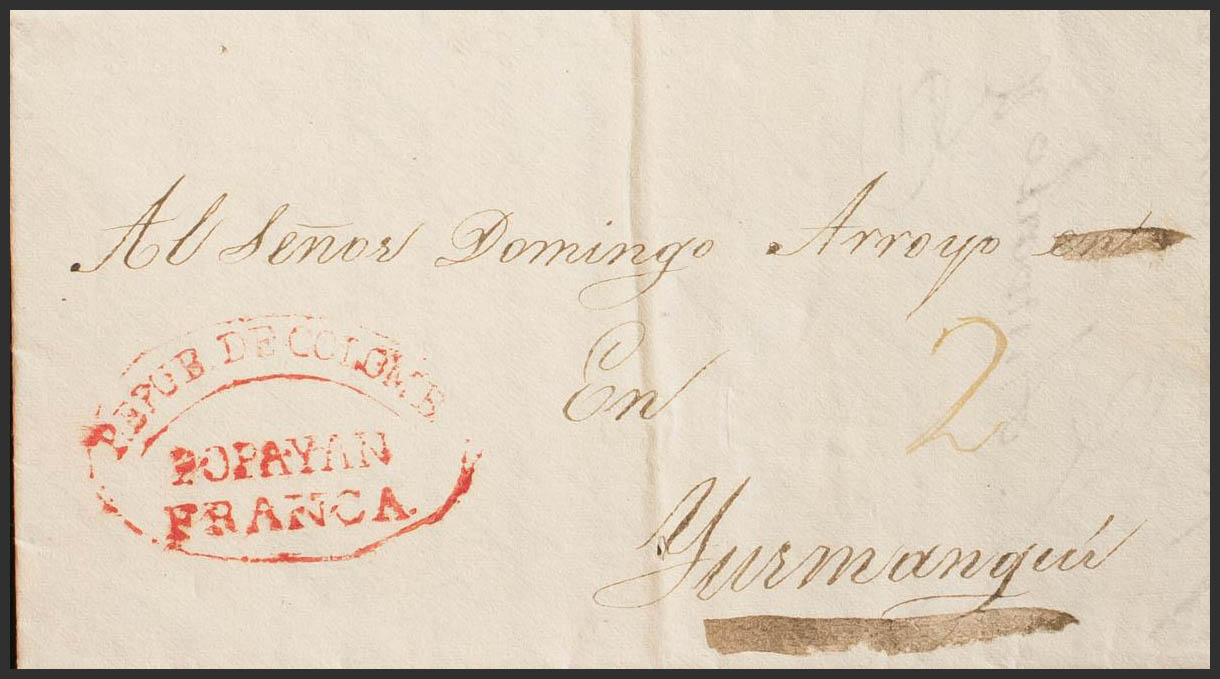 Al Señor Domingo Arroyo
En
2
Yurmanguí
REPUB. DE COLOMB
POPAYAN
FRANCA